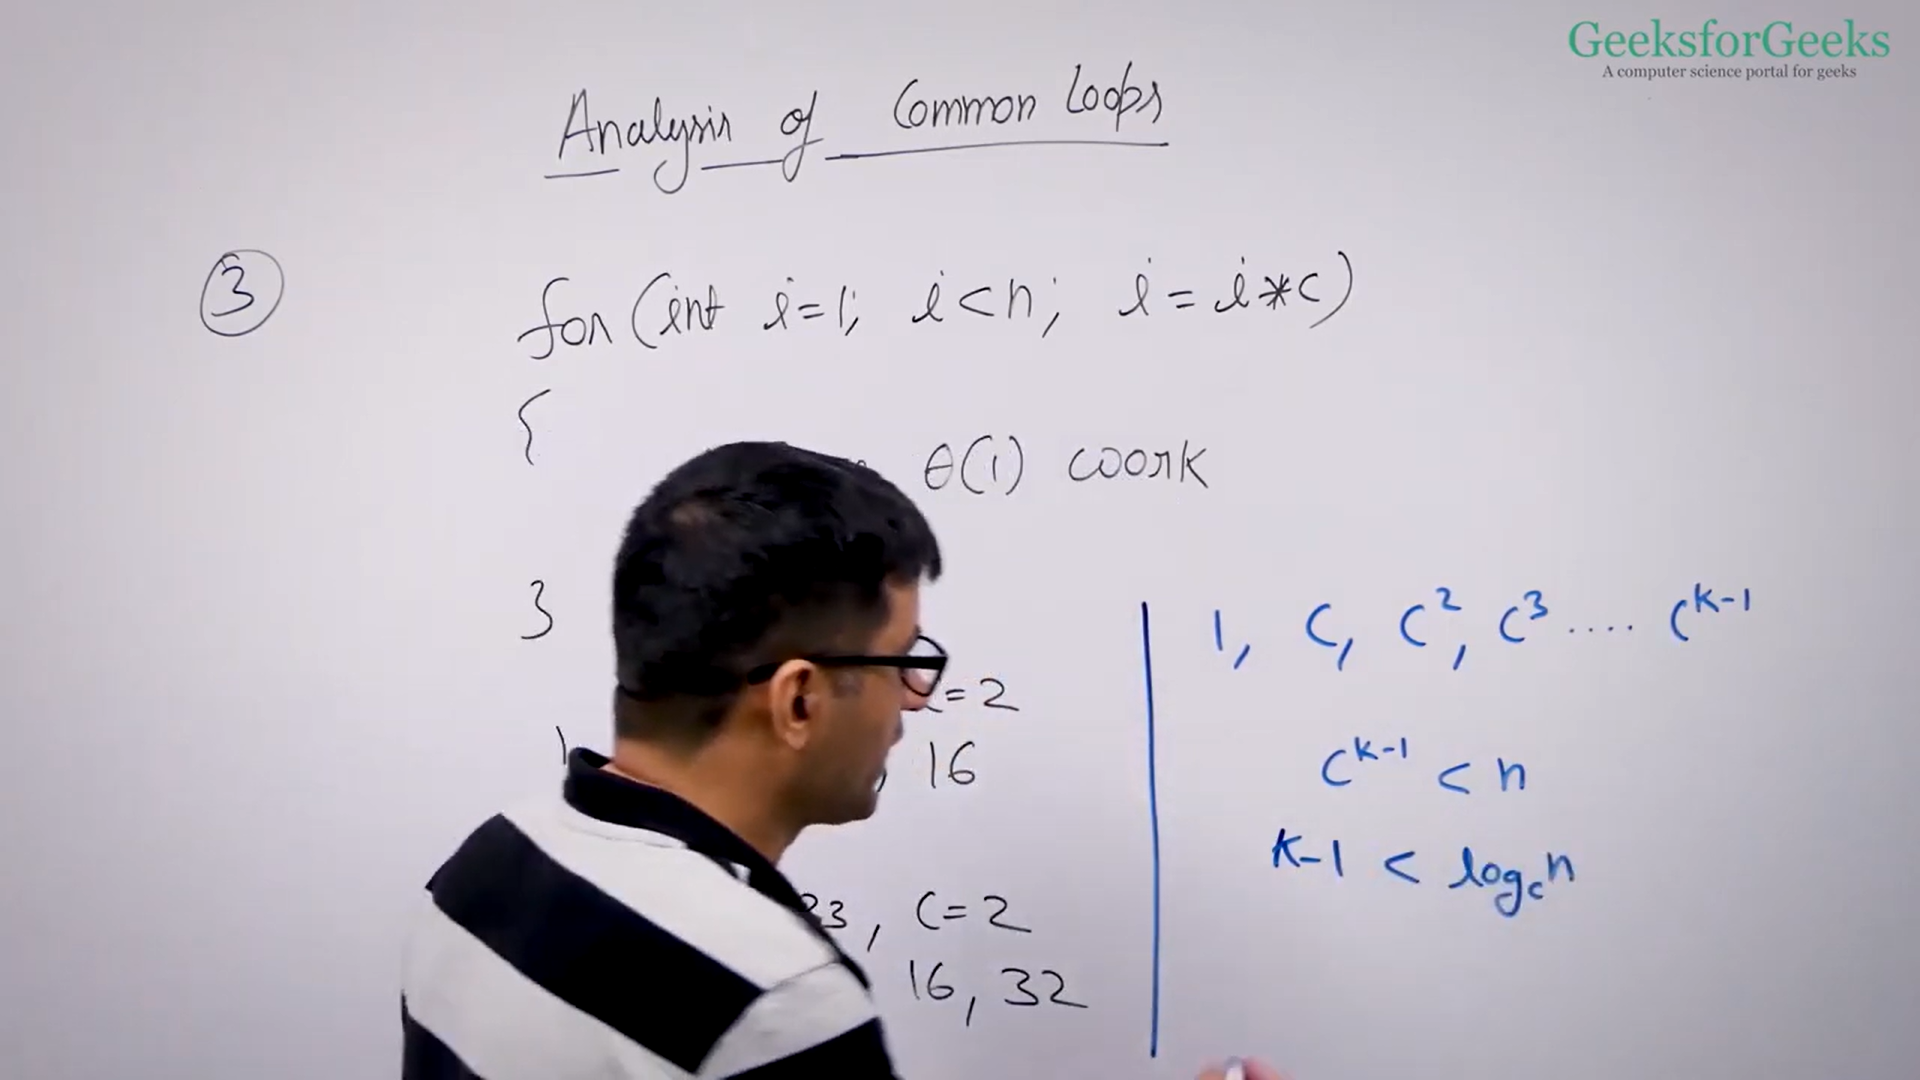 GeeksforGeeks
A computer science portal for geeks
Analysis of Common Loops
3
for (int i=1; i<n; i=i*c)
{
θ(1) work
}
=2
, 16
33, C=2
16, 32
1, C, C², C³ .... C^(k-1)
C^(k-1) < n
k-1 < log_c n